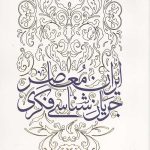 جریان‌شناسی فکری
ایران معاصر